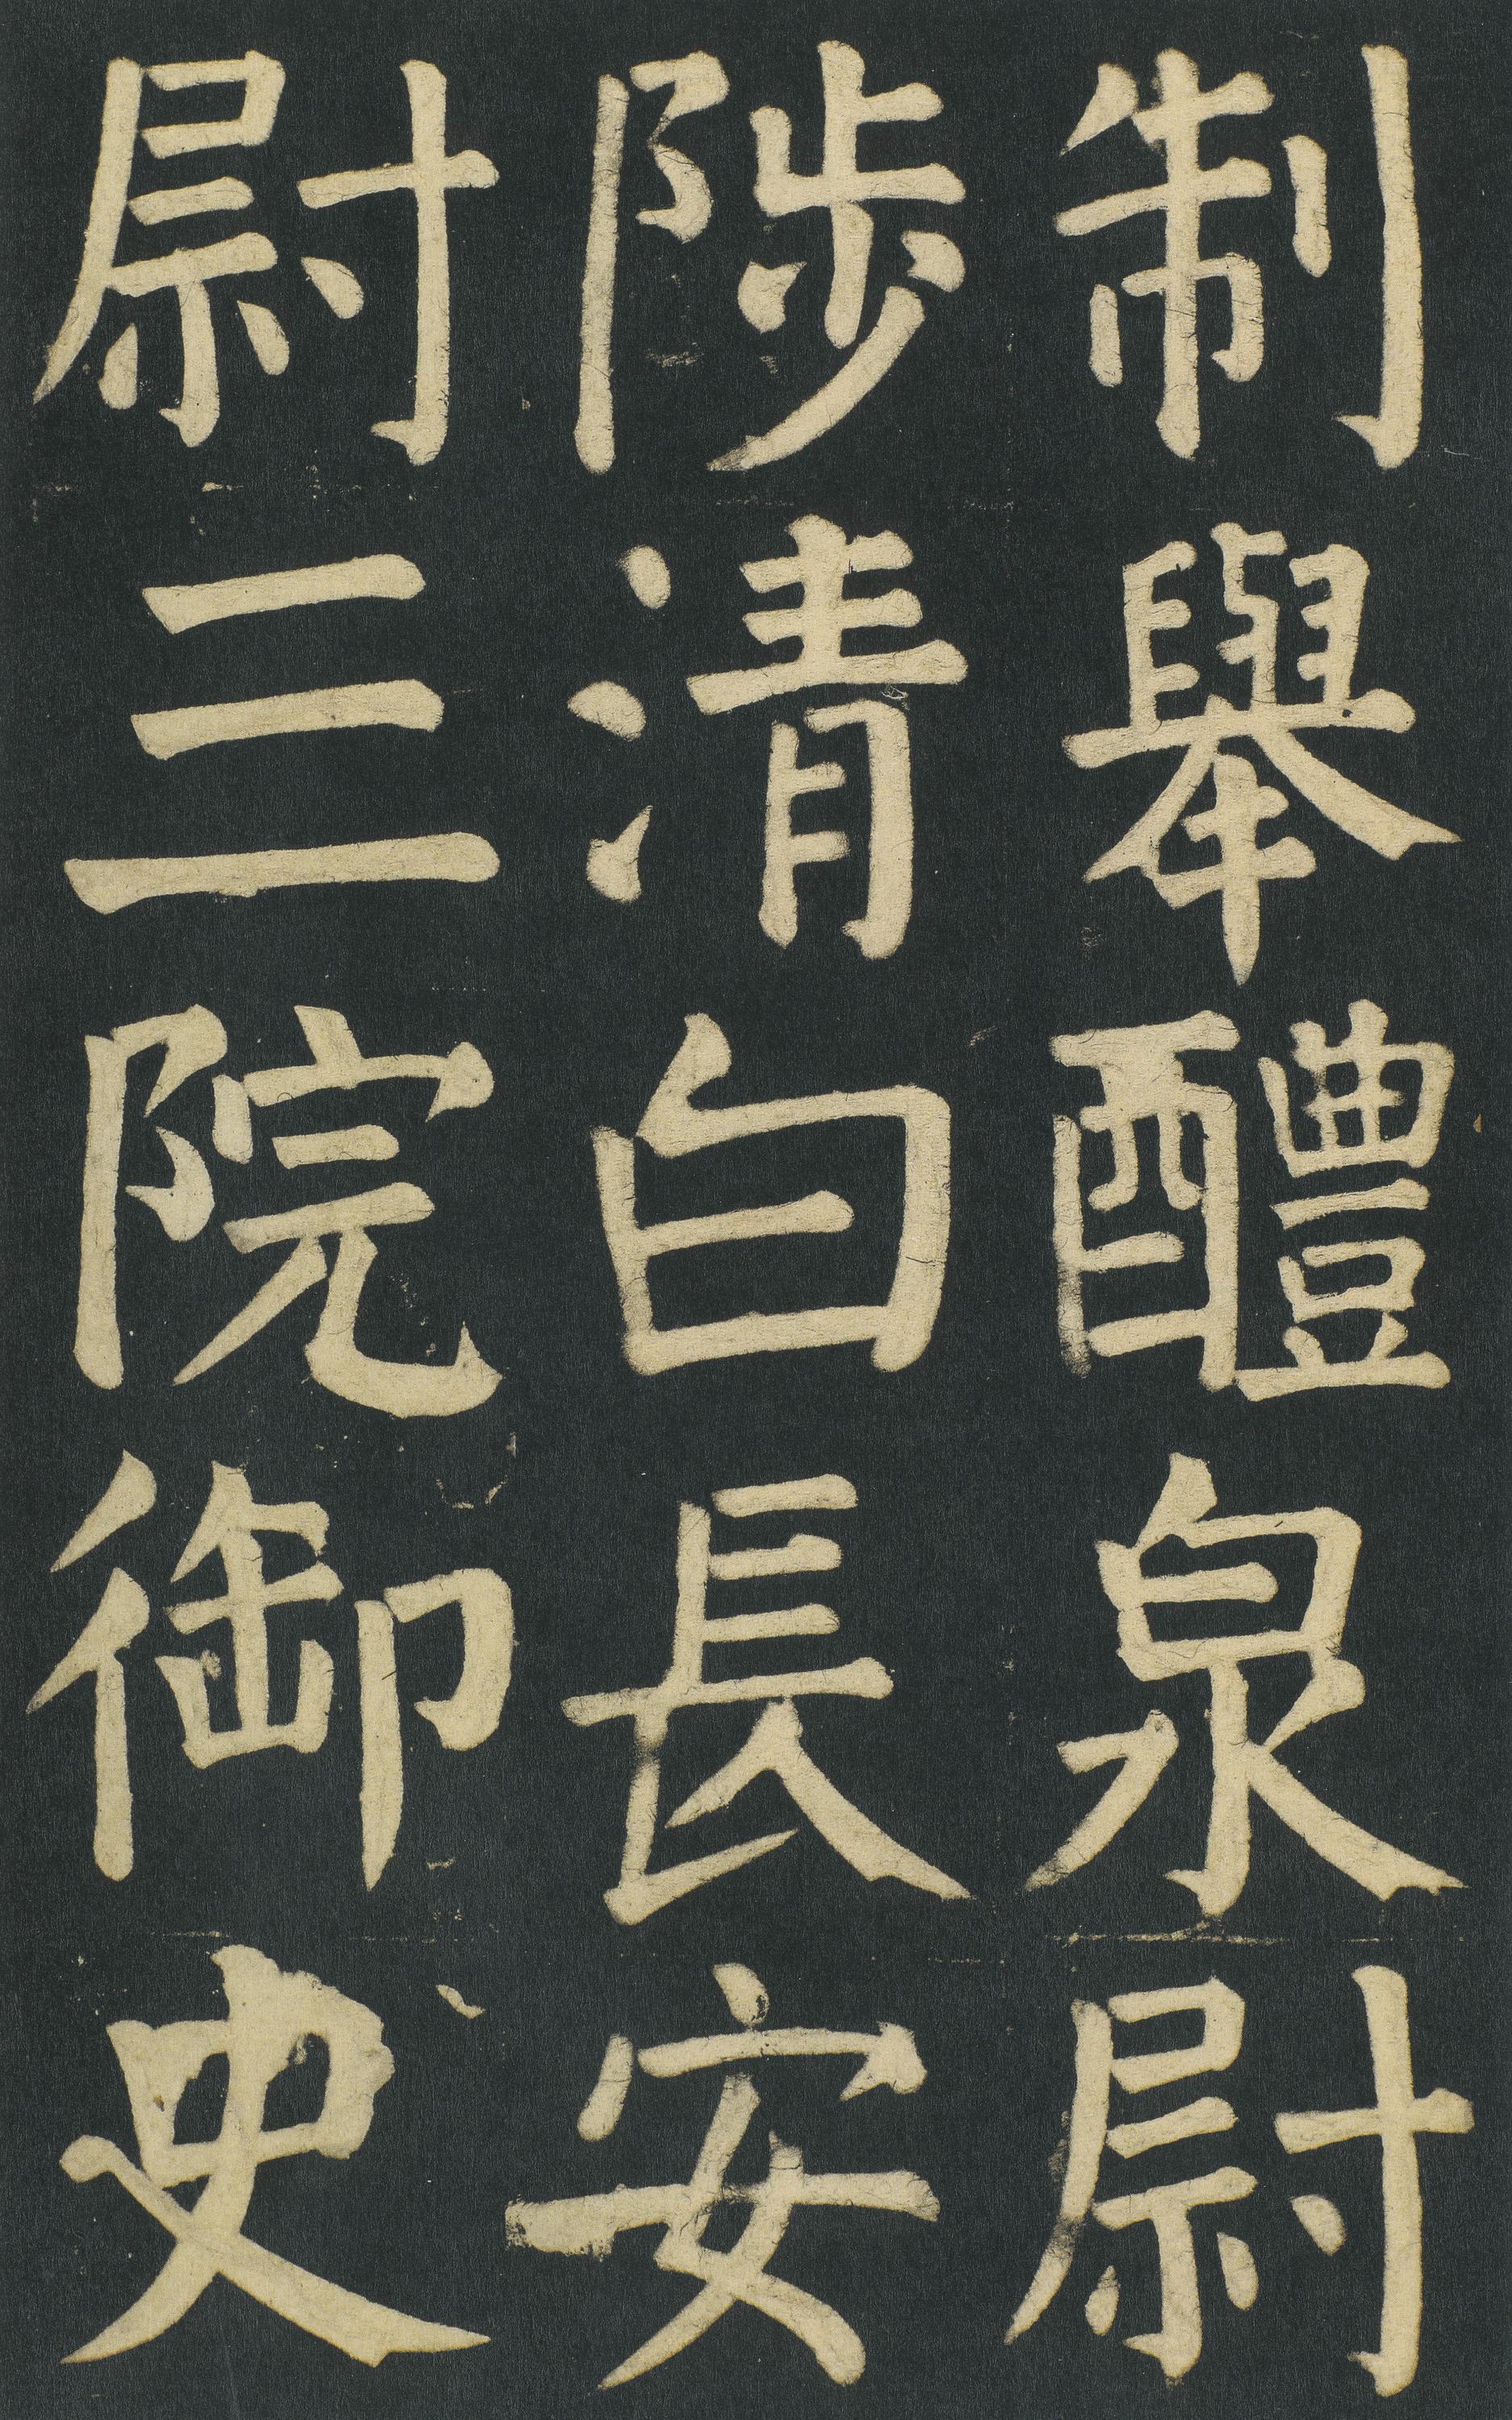 制舉醴泉尉
陟清白長安
尉三院御史